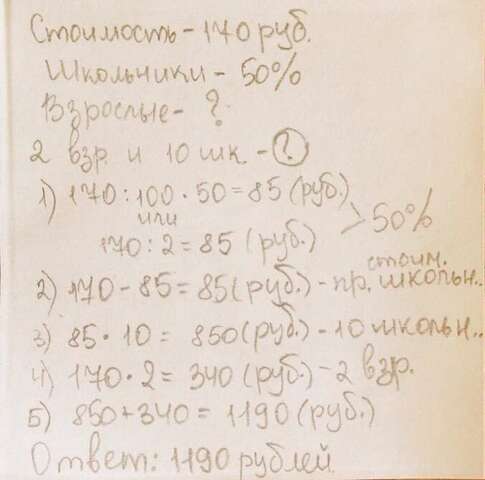 Стоимость - 170 руб.
Школьники - 50%
Взрослые - ?
2 взр. и 10 шк. - ?
1) 170 : 100 · 50 = 85 (руб.)
или
170 : 2 = 85 (руб.) > 50%
2) 170 - 85 = 85 (руб.) - пр. стоим. школьн..
3) 85 · 10 = 850 (руб.) - 10 школьн..
4) 170 · 2 = 340 (руб.) - 2 взр.
5) 850 + 340 = 1190 (руб.)
Ответ: 1190 рублей.